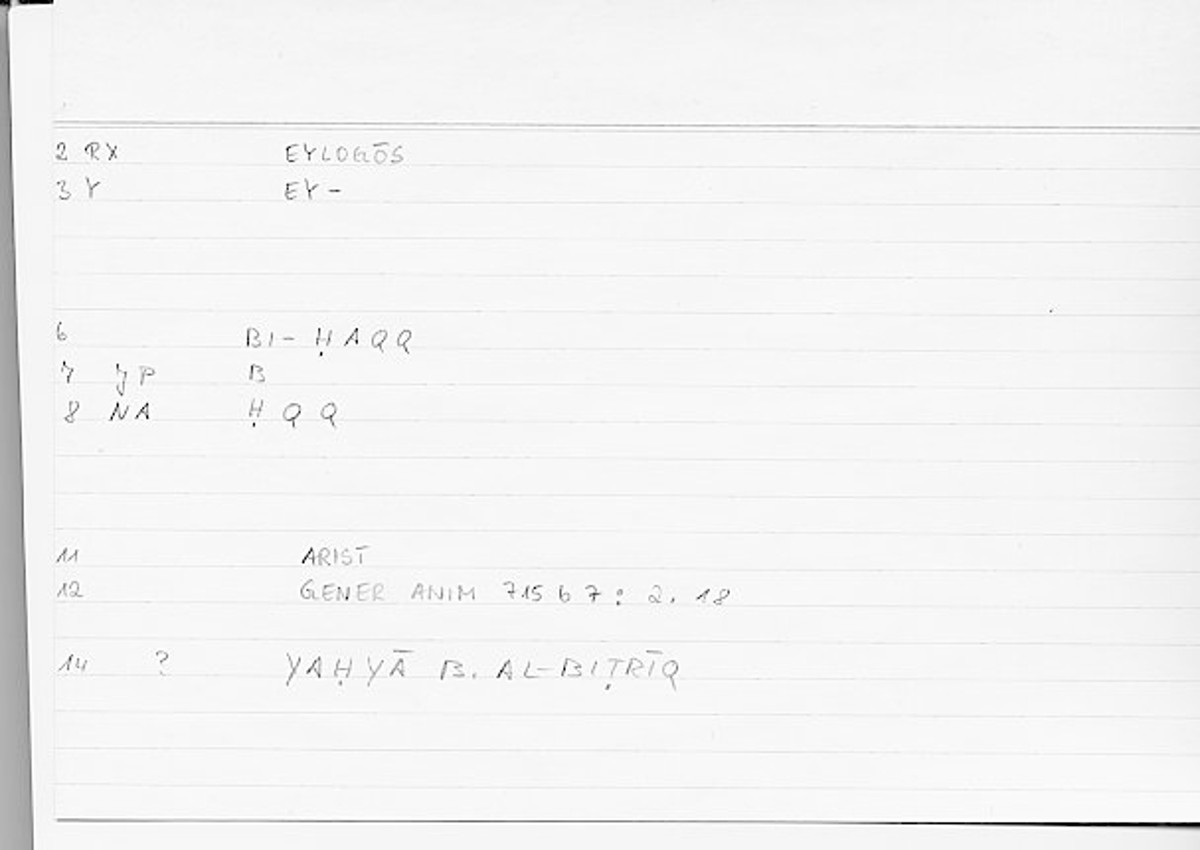 2 RX EYLOGŌS
3 Y EY-
6 BI- ḤAQQ
7 JP B
8 NA ḤQQ
11 ARIST
12 GENER ANIM 715 b 7 : 2. 18
14 ? YAḤYĀ B. AL-BIṬRĪQ